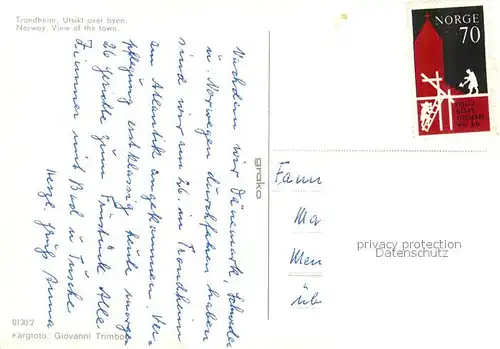 Trondheim. Utsikt over byen.
Norway. View of the town.
Nachdem wir Dänemark, Schweden
u. Norwegen durchfahren haben
sind wir am 26. in Trondheim
am Atlantik angekommen. Ver-
pflegung erstklassig heute morgen
26 gezählte zum Frühstück Alle
Zimmer mit Bad u Dusche
Herzl. Grüße Anna
0130/2
Fargfoto: Giovanni Trimboli
grako
NORGE
70
Fam
Ma
Men
üb
privacy protection
Datenschutz